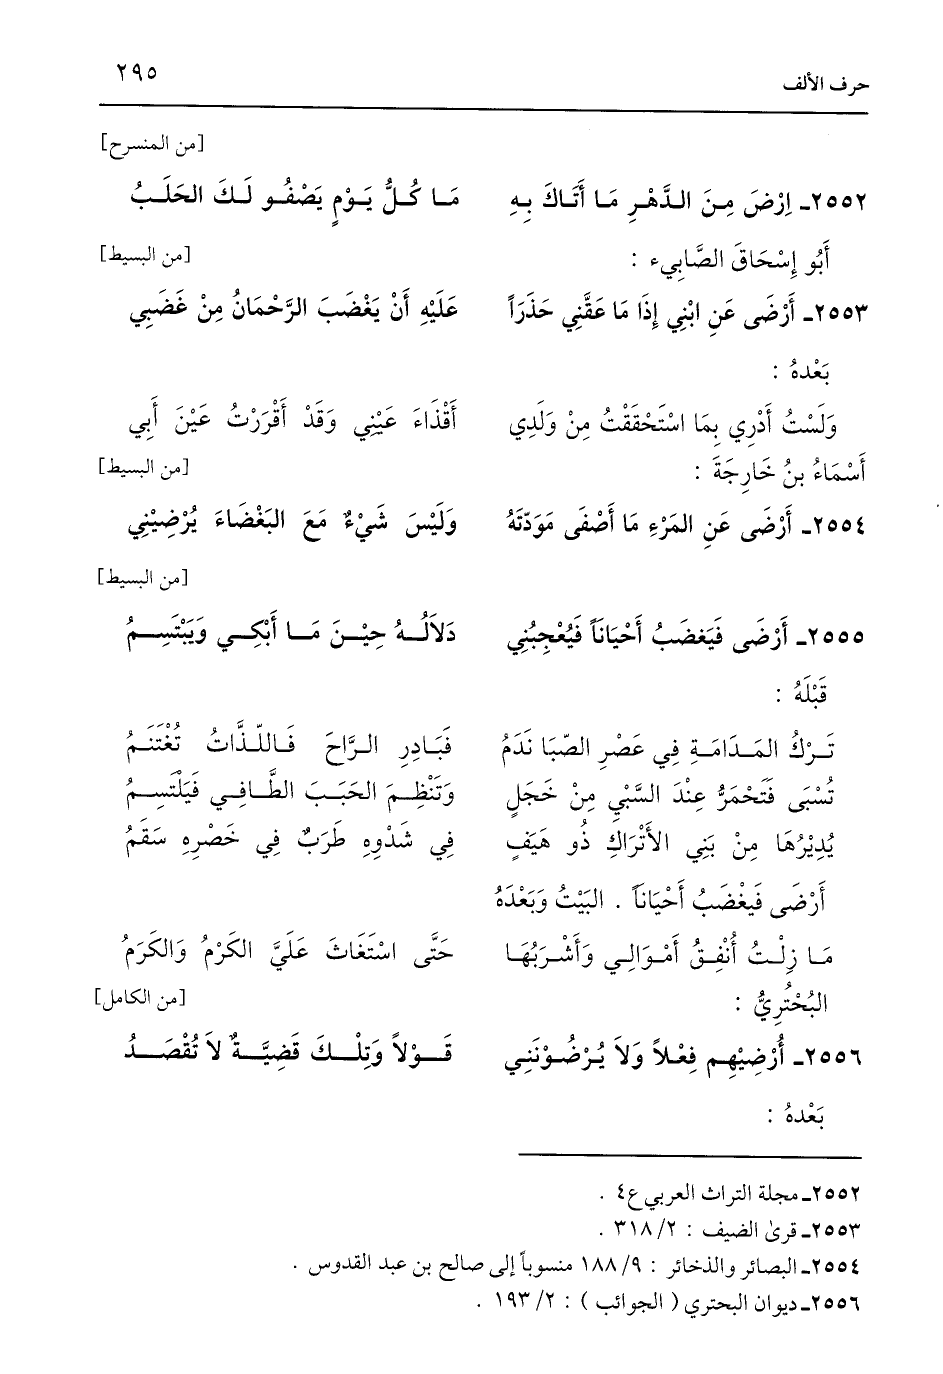 حرف الألف ٢٩٥
[من المنسرح]
٢٥٥٢ـ اِرْضَ مِنَ الدَّهْرِ مَا أَتَاكَ بِهِ مَا كُلُّ يَوْمٍ يَصْفُو لَكَ الحَلَبُ
أَبُو إِسْحَاقَ الصَّابِيء : [من البسيط]
٢٥٥٣ـ أَرْضَى عَنِ ابْنِي إِذَا مَا عَقَّنِي حَذَرَاً عَلَيْهِ أَنْ يَغْضَبَ الرَّحْمَانُ مِنْ غَضَبِي
بَعْدهُ :
وَلَسْتُ أَدْرِي بِمَا اسْتَحْقَقْتُ مِنْ وَلَدِي أَقْذَاءَ عَيْنِي وَقَدْ أَقْرَرْتُ عَيْنَ أَبِي
أَسْمَاءُ بنُ خَارِجَةَ : [من البسيط]
٢٥٥٤ـ أَرْضَى عَنِ المَرْءِ مَا أَصْفَى مَوَدَّتَهُ وَلَيْسَ شَيْءٌ مَعَ البَغْضَاءَ يُرْضِيْنِي
[من البسيط]
٢٥٥٥ـ أَرْضَى فَيَغضَبُ أَحْيَانَاً فَيُعْجِبُنِي دَلاَلُهُ حِيْنَ مَا أَبْكِي وَيَبْتَسِمُ
قَبْلَهُ :
تَرْكُ المَدَامَةِ فِي عَصْرِ الصِّبَا نَدَمُ فَبَادِرِ الرَّاحَ فَاللّذَّاتُ تُغْتَنَمُ
تُسْبَى فَتَحْمَرُّ عِنْدَ السَّبْيِ مِنْ خَجَلٍ وَتَنْظِمَ الحَبَبَ الطَّافِي فَيَلْتَسِمُ
يُدِيْرُهَا مِنْ بَنِي الأَتْرَاكِ ذُو هَيَفٍ فِي شَدْوِهِ طَرَبٌ فِي خَصْرِهِ سَقَمُ
أَرْضَى فَيغْضَبُ أَحْيَانَاً . البَيْتُ وَبَعْدَهُ
مَا زِلْتُ أُنْفِقُ أَمْوَالِي وَأَشْرَبُهَا حَتَّى اسْتَغَاثَ عَلَيَّ الكَرْمُ وَالكَرَمُ
البُحْتُرِيُّ : [من الكامل]
٢٥٥٦ـ أُرْضِيْهِم فِعْلاً وَلاَ يُرْضُوْنَنِي قَوْلاً وَتِلْكَ قَضِيَّةٌ لاَ تُقْصَدُ
بَعْدهُ :
٢٥٥٢ـ مجلة التراث العربي ع٤ .
٢٥٥٣ـ قرىٰ الضيف : ٢/ ٣١٨ .
٢٥٥٤ـ البصائر والذخائر : ٩/ ١٨٨ منسوباً إلى صالح بن عبد القدوس .
٢٥٥٦ـ ديوان البحتري ( الجوائب ) : ٢/ ١٩٣ .